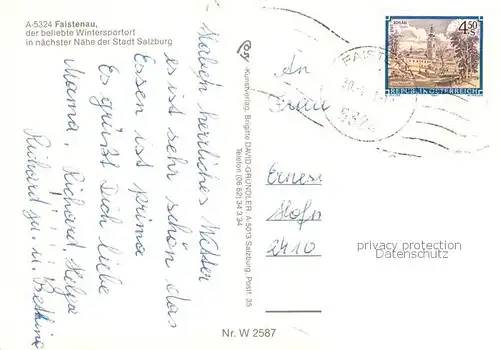 A-5324 Faistenau,
der beliebte Wintersportort
in nächster Nähe der Stadt Salzburg
Haben herrliches Wetter
es ist sehr schön das
Essen ist prima
Es grüßt Dich liebe
Mama, Richard, Helga
Richard ju. u. Bettina
Kunstverlag, Brigitte DAVID-GRÜNDLER, A-5013 Salzburg, Postf. 35
Telefon (06 62) 34 9 34
Nr. W 2587
An
Frau
2410
4.50 S
REPUBLIK ÖSTERREICH
FAIST
5324
privacy protection
Datenschutz